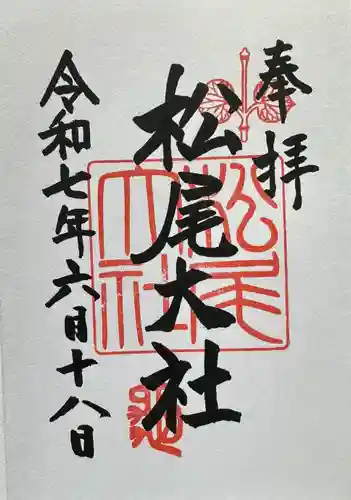 奉拝
松尾大社
令和七年六月十八日
松尾大社